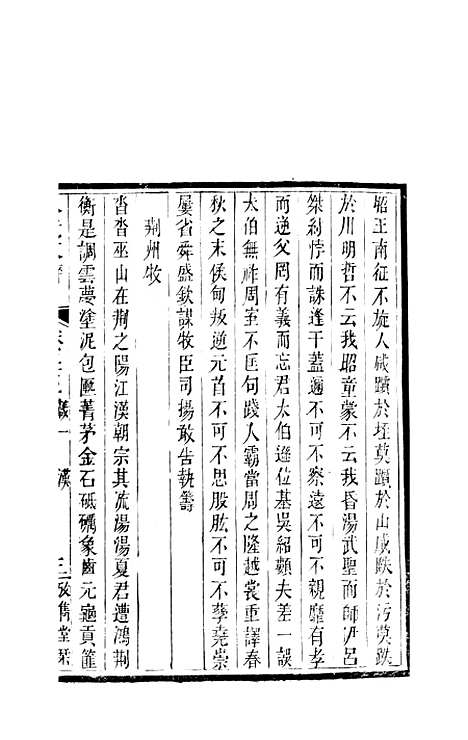 昭王南征不旋人咸躓於垤莫躓於山咸跌於污莫跌
於川明哲不云我昭童蒙不云我昏湯武聖而師伊呂
桀紂悖而誅逢干蓋邇不可不察遠不可不親靡有孝
而逆父罔有義而忘君太伯遜位基吳紹類夫差一誤
太伯無祚周室不匡句踐入霸當周之隆越裳重譯春
秋之末侯甸叛逆元首不可不思股肱不可不孳堯崇
屢省舜盛欽謀牧臣司揚敢告執籌
荆州牧
沓沓巫山在荆之陽江漢朝宗其流湯湯夏君遭鴻荆
衡是調雲夢塗泥包匭菁茅金石砥礪象齒元龜貢篚
箴一 漢